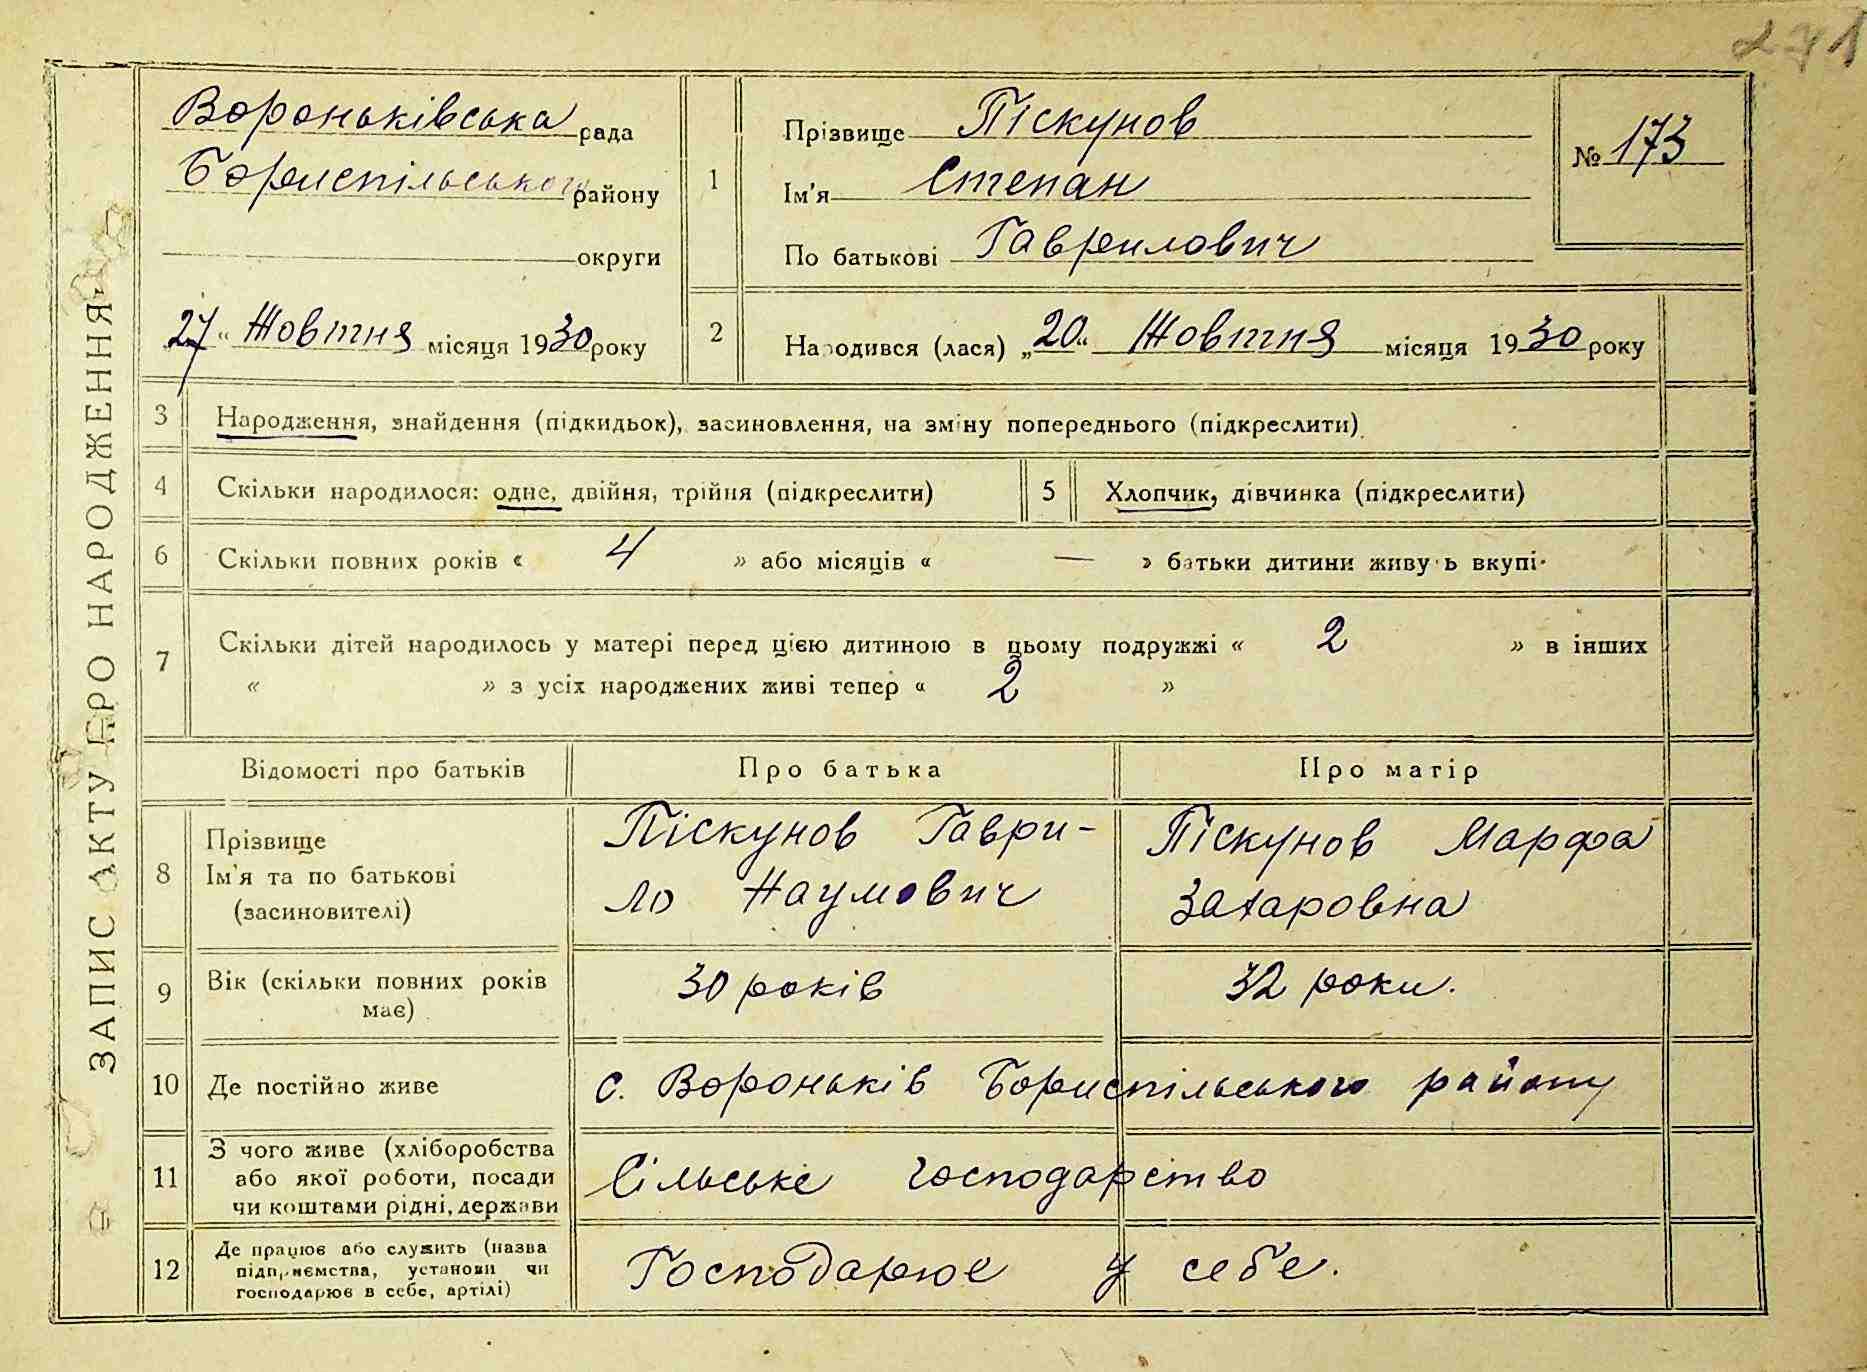 271
ЗАПИС АКТУ ПРО НАРОДЖЕННЯ
Вороньківська рада
Бориспільського району
округи
„27“ Жовтня місяця 1930 року
1
Прізвище Піскунов
Ім'я Степан
По батькові Гаврилович
№ 173
2
Народився (лася) „20“ Жовтня місяця 1930 року
3 Народження, знайдення (підкидьок), засиновлення, на зміну попереднього (підкреслити)
4 Скільки народилося: одне, двійня, трійня (підкреслити)
5 Хлопчик, дівчинка (підкреслити)
6 Скільки повних років « 4 » або місяців « — » батьки дитини живуть вкупі
7 Скільки дітей народилось у матері перед цією дитиною в цьому подружжі « 2 » в інших
« » з усіх народжених живі тепер « 2 »
Відомості про батьків Про батька Про матір
8
Прізвище
Ім'я та по батькові
(засиновителі)
Піскунов Гаври-
ло Наумович
Піскунов Марфа
Захаровна
9
Вік (скільки повних років
має)
30 років
32 роки.
10 Де постійно живе
с. Вороньків Бориспільського району
11
З чого живе (хліборобства
або якої роботи, посади
чи коштами рідні, держави
Сільське господарство
12
Де працює або служить (назва
підприємства, установи чи
господарює в себе, артілі)
Господарює у себе.